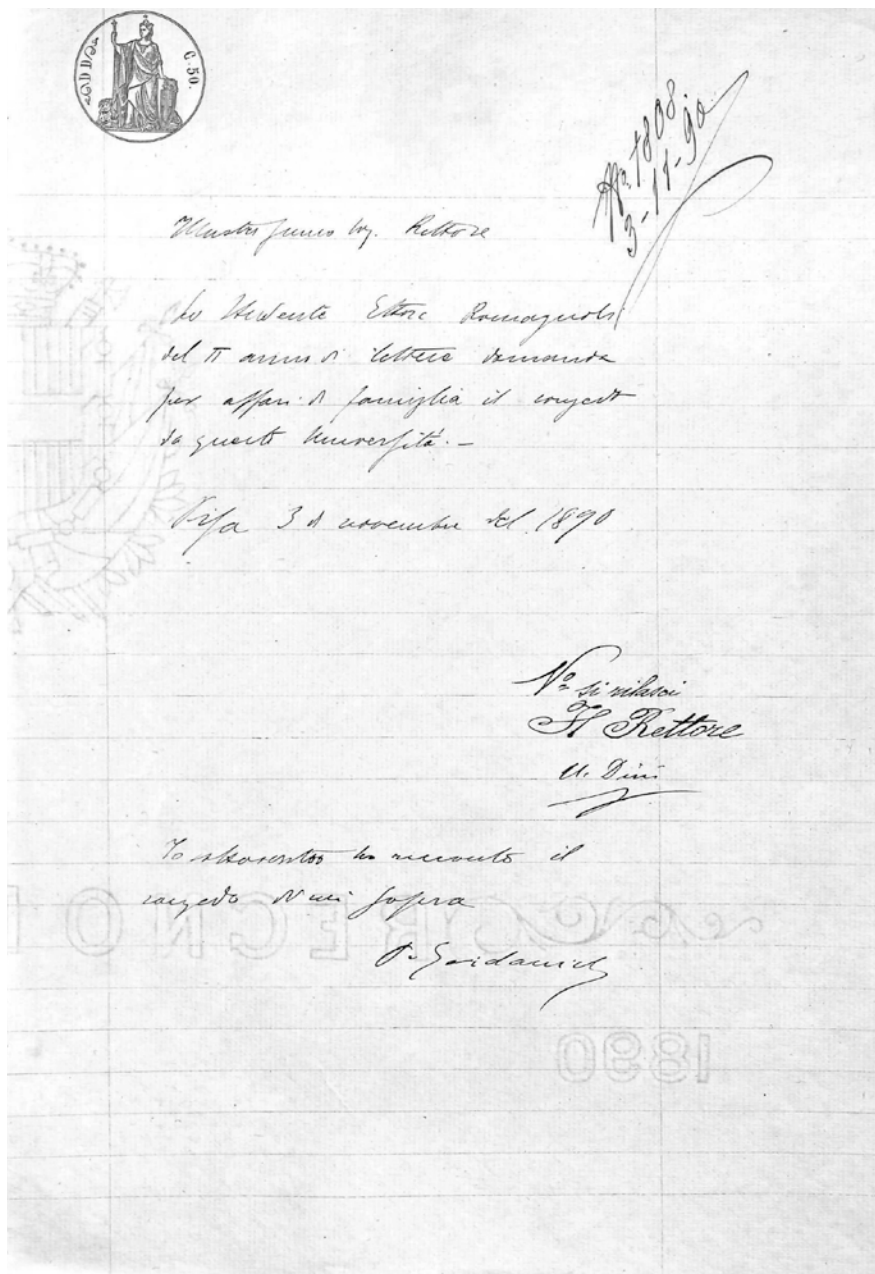 C. 50.
1808
3-11-90
Illustrissimo Sig. Rettore
Lo studente Ettore Romagnoli
del II anno di lettere domanda
per affari di famiglia il congedo
da questa Università. –
Pisa 3 di novembre del 1890
Vo si rilasci
Il Rettore
U. Dini
Io sottoscritto ho ricevuto il
congedo di cui sopra
1890